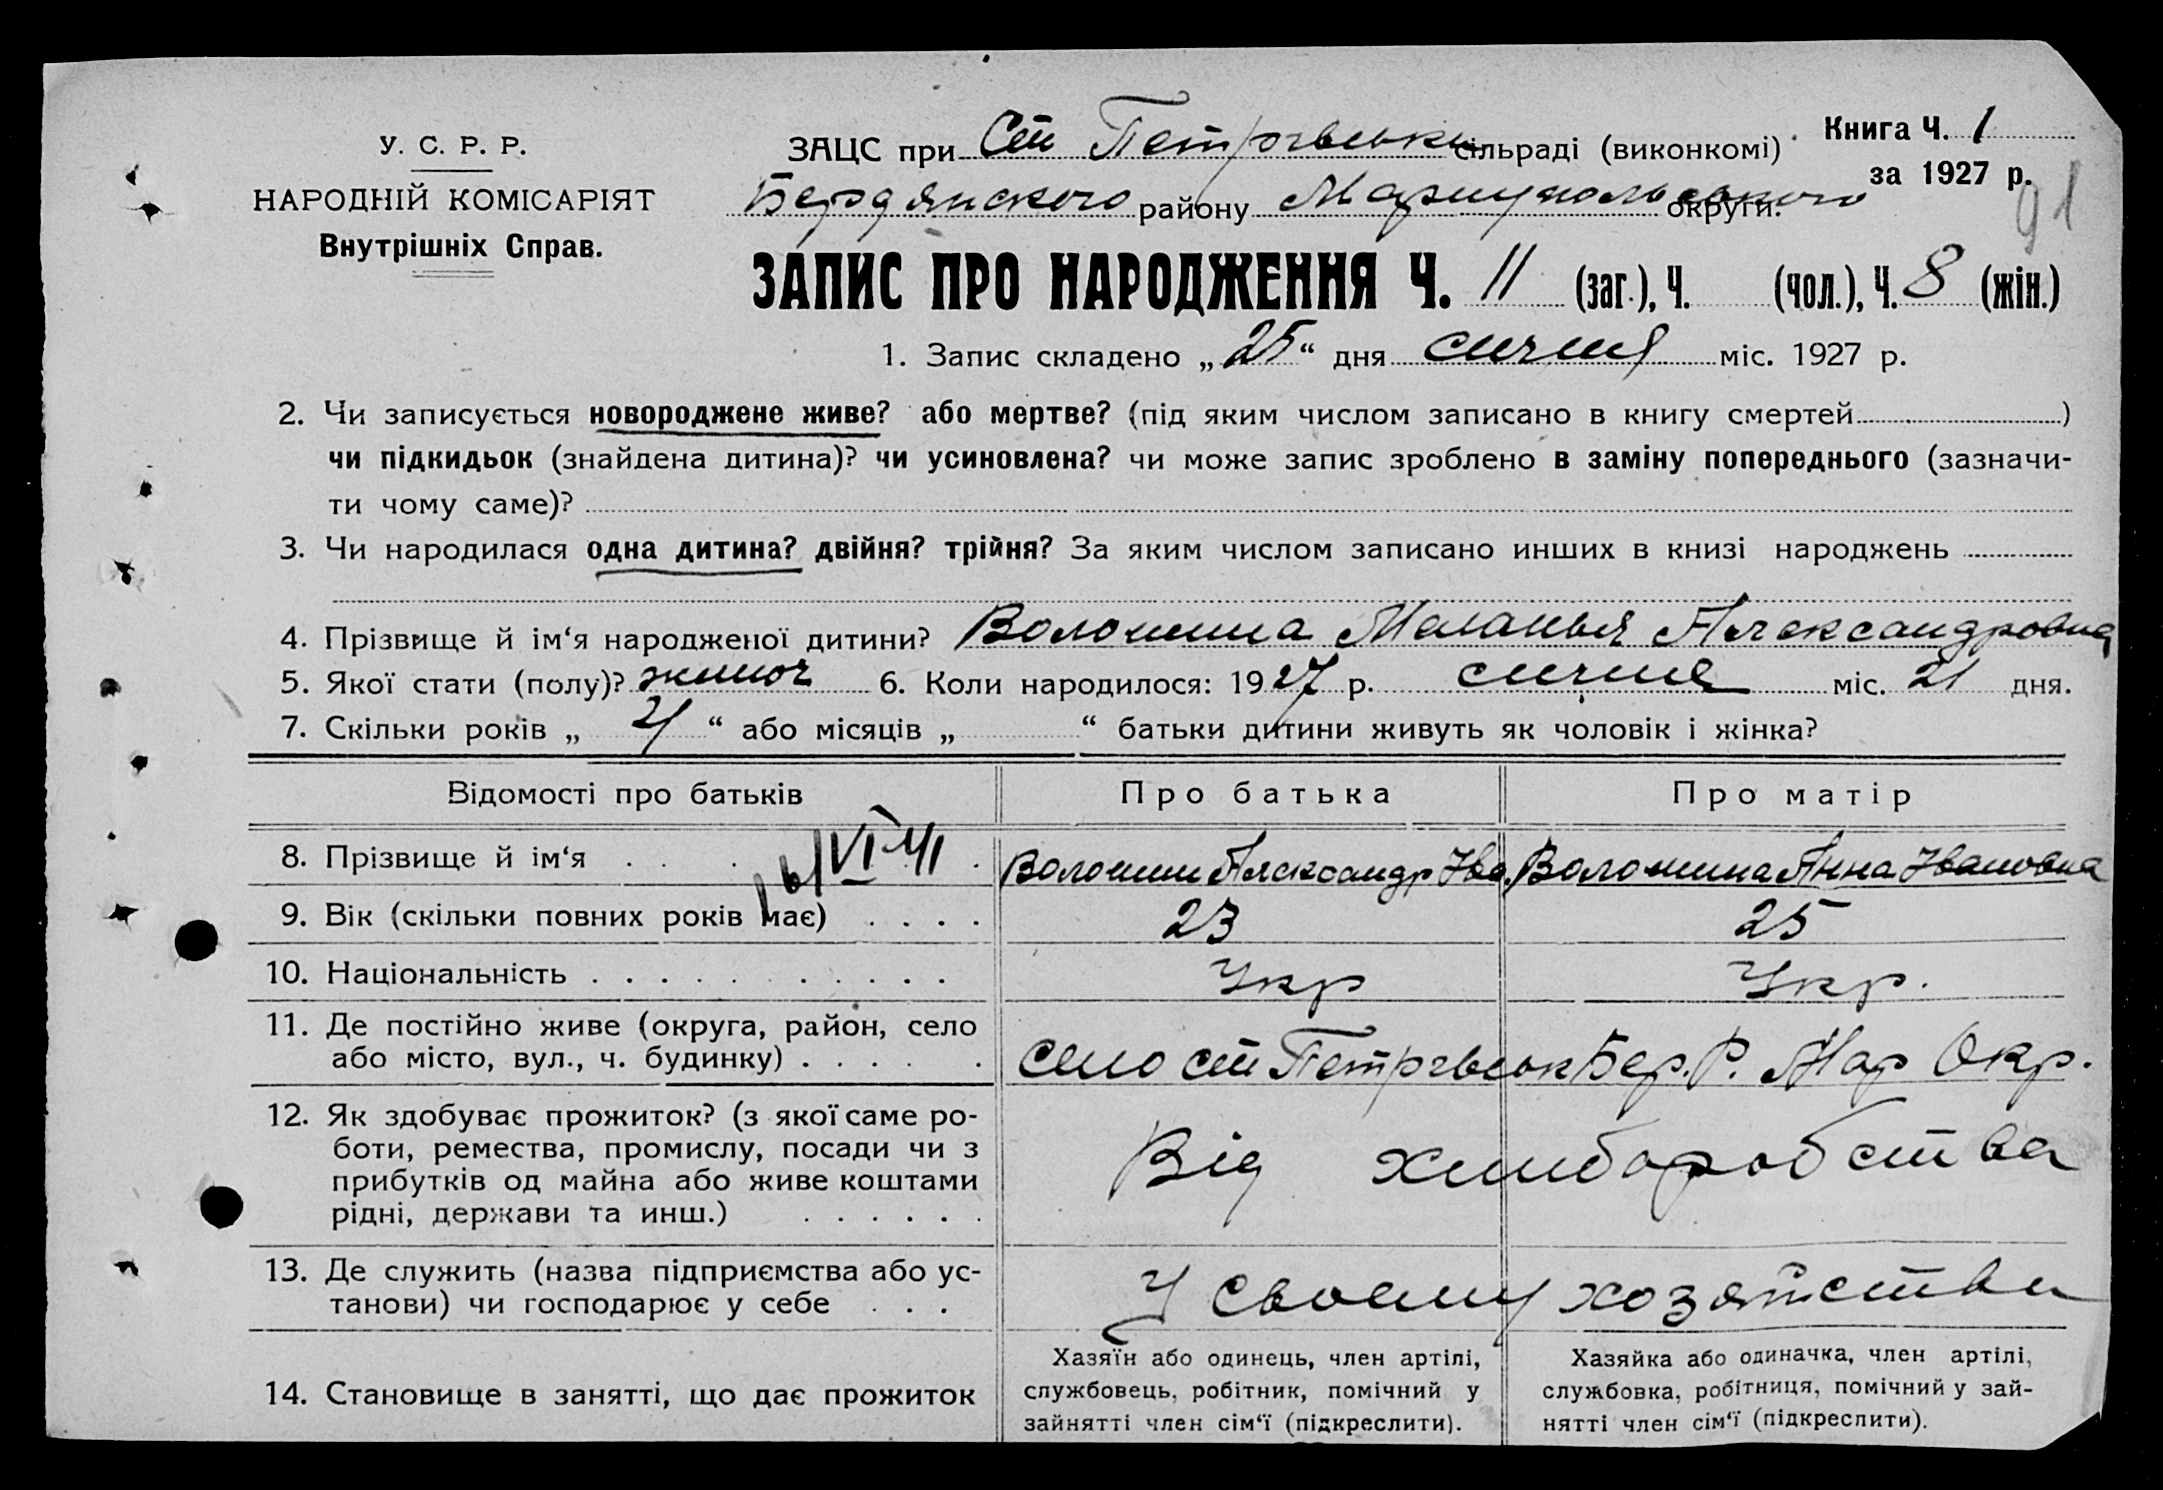 У. С. Р. Р.
НАРОДНІЙ КОМІСАРІЯТ
Внутрішніх Справ.
ЗАЦС при Ст Петрівськи сільраді (виконкомі)
Книга Ч. 1
за 1927 р.
91
Бердянского району Мариупольського округи.
ЗАПИС ПРО НАРОДЖЕННЯ Ч. 11 (заг.), Ч. (чол.), Ч. 8 (жін.)
1. Запис складено „ 25 “ дня сичня міс. 1927 р.
2. Чи записується новороджене живе? або мертве? (під яким числом записано в книгу смертей )
чи підкидьок (знайдена дитина)? чи усиновлена? чи може запис зроблено в заміну попереднього (зазначи-
ти чому саме)?
3. Чи народилася одна дитина? двійня? трійня? За яким числом записано инших в книзі народжень
4. Прізвище й ім‘я народженої дитини? Волошина Маланья Александровна
5. Якої стати (полу)? жиноч 6. Коли народилося: 1927 р. сичня міс. 21 дня.
7. Скільки років „ 4 “ або місяців „ “ батьки дитини живуть як чоловік і жінка?
Відомості про батьків Про батька Про матір
8. Прізвище й ім‘я Волошин Александр Ива. Волошина Анна Ивановна
9. Вік (скільки повних років має) 23 25
10. Національність Укр Укр.
11. Де постійно живе (округа, район, село
або місто, вул., ч. будинку) Село Ст Петрівськ Бер. Р. Мар Окр.
12. Як здобуває прожиток? (з якої саме ро-
боти, ремества, промислу, посади чи з
прибутків од майна або живе коштами
рідні, держави та инш.) Від хлиборобства
13. Де служить (назва підприємства або ус-
танови) чи господарює у себе У своему хозяйстви
14. Становище в занятті, що дає прожиток
Хазяїн або одинець, член артілі,
службовець, робітник, помічний у
зайнятті член сім‘ї (підкреслити).
Хазяйка або одиначка, член артілі,
службовка, робітниця, помічний у зай-
нятті член сім‘ї (підкреслити).